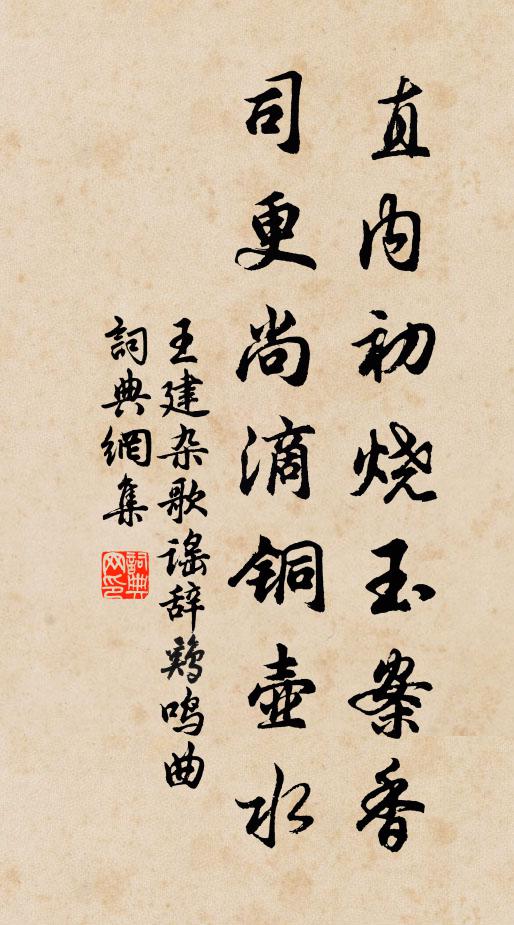 直内初烧玉案香
司更尚滴铜壶水
王建杂歌谣辞鸡鸣曲
詞典網集
詞典网印